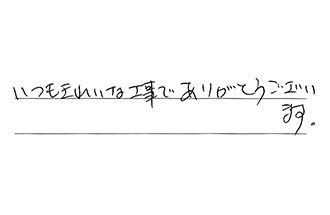 いつもきれいな工事でありがとうござい
ます。